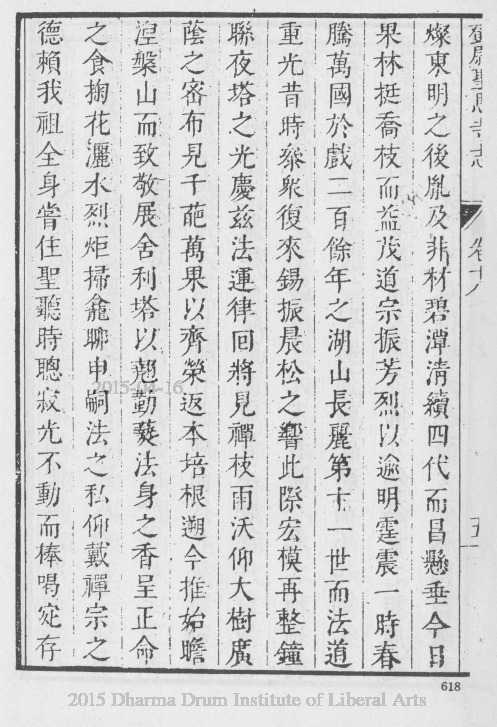 鄧尉聖恩寺志
卷十八
五一
燦東明之後胤及非材碧潭清續四代而昌懸垂今日
果林挺喬枝而益茂道宗振芳烈以逾明霆震一時春
騰萬國於戲二百餘年之湖山長麗第十一世而法道
重光昔時叅衆復來錫振晨松之響此際宏模再整鐘
聯夜塔之光慶茲法運律回將見禪枝雨沃仰大樹廣
蔭之密布見千葩萬果以齊榮返本培根遡今推始瞻
涅槃山而致敬展舍利塔以趨勤爇法身之香呈正命
之食掬花灑水烈炬掃龕聊申嗣法之私仰戴禪宗之
德賴我祖全身嘗住聖聽時聰寂光不動而棒喝宛存
618
2015-04-16
2015 Dharma Drum Institute of Liberal Arts